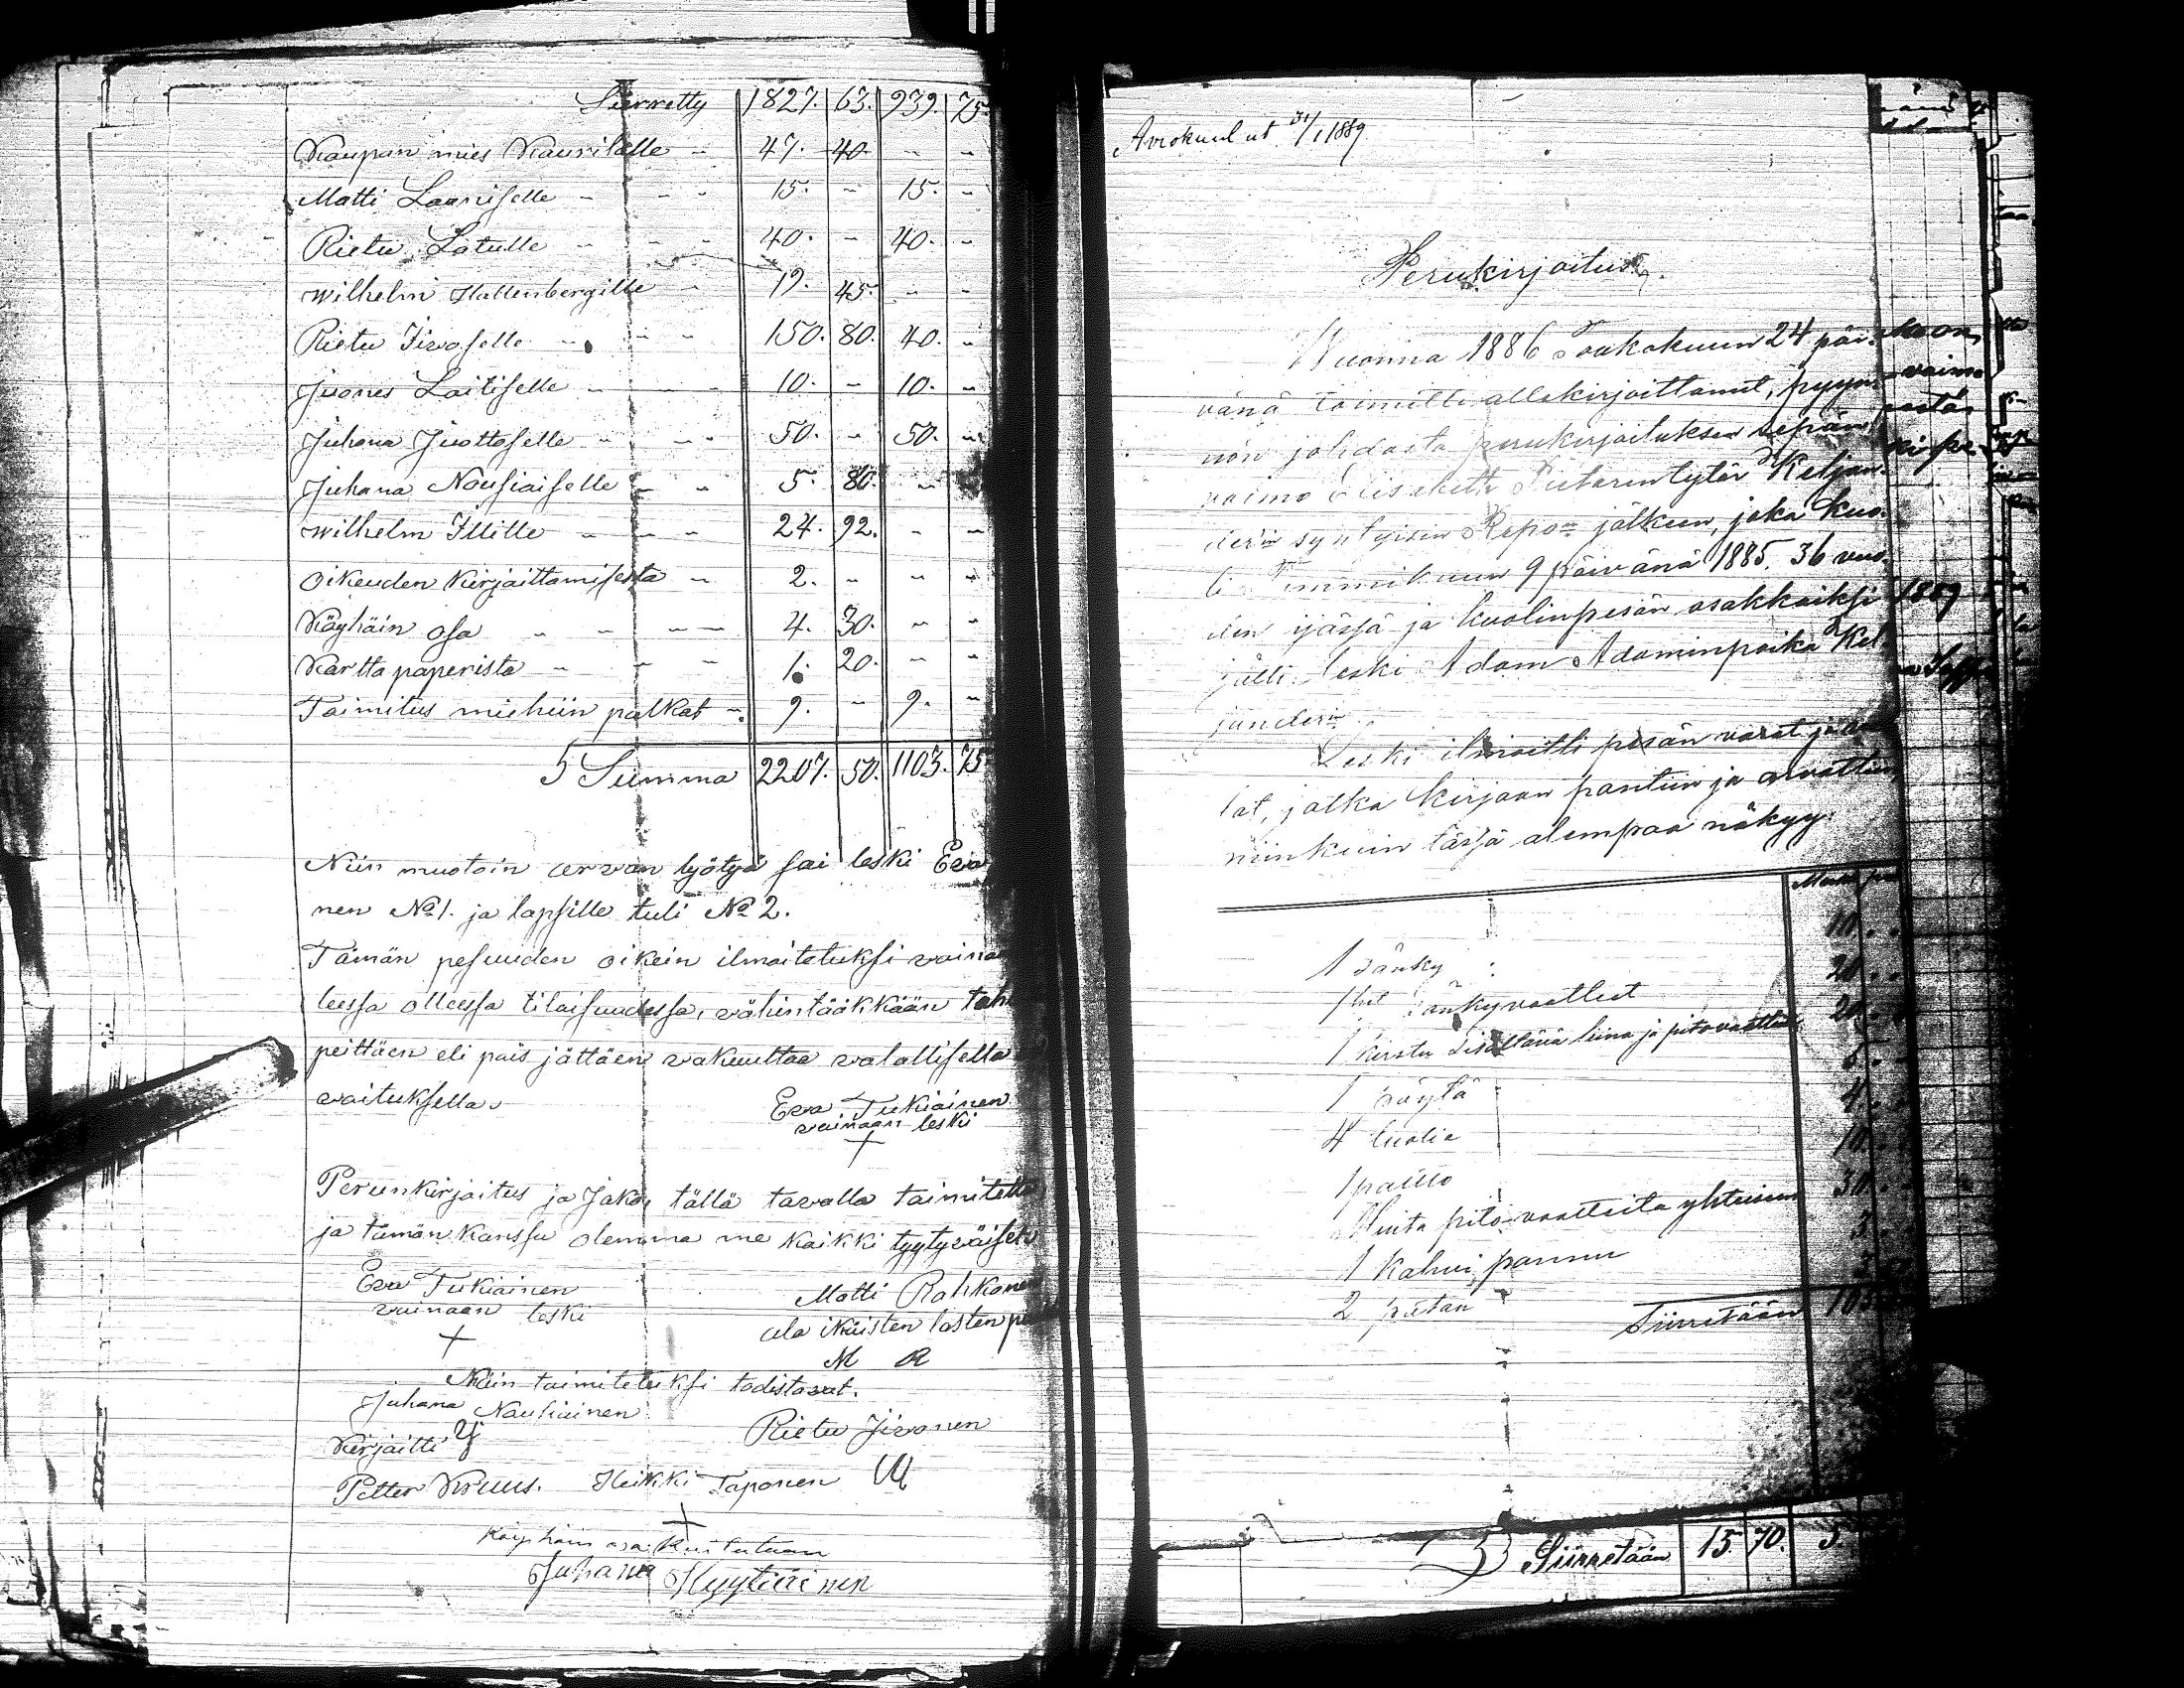 Siirretty 1827. 63. 939. 75
Kaupan mies Kauriselle 47. 40 - -
Matti Laaniselle 15. - 15. -
Rietu Latulle 40. - 40. -
Wilhelm Hallenbergille 19. 45. - -
Rietu Jivoselle 150. 80. 40. -
Juones Laitiselle 10. - 10. -
Juhana Juottoselle 50. - 50. -
Juhana Nousiaiselle 5. 80. -
Wilhelm Illille 24. 92. - -
Oikeuden Kirjoittamisesta 2. - - -
Käyhäin osa 4. 30. - -
Kartta paperista 1. 20. - -
Toimitus miehiin palkat 9. - 9. -
Summa 2207. 50. 1103. 75
Niin muotoin arvan lyötyä sai leski Eva
nen No 1. ja lapsille tuli No 2.
Tämän pesuuden oikein ilmoitetuksi
leessa olleessa tilaisuudessa, vähintääkkään
peittäen eli pois jättäen vakuuttaa valallisella
vaituksella
Eva Tukiainen
vainaan leski
+
Perunkirjoitus ja Jako, tällä tavalla toimitettu
ja tämän kanssa olemma me kaikki tyytyväiset
Eva Tukiainen
vainaan leski
+
Matti Rahkonen
ala ikäisten lasten
M R
Näin toimitetuksi todistavat.
Juhana Nousiainen
Rietu Jivonen
Kirjoitti
Petter Kruus. Heikki Taponen
+
Käyhäin osa
Juhana Hyytiäinen
31/1 1889
Perukirjoitus.
Vuonna 1886 Toukokuun 24 päi-
vänä toimitti allekirjoittanut, pyyn-
nön johdosta perukirjoituksen sepän
vaimo Elisabeth Pietarintytär Keljan-
derin syntyisin Repo jälkeen, joka kuo-
li Tammikuun 9 päivänä 1885. 36 vuo-
den ijässä ja kuolinpesän osakkaiksi
jätti leski Adam Adaminpoika Kel-
janderin
Leski ilmoitti pesän varat ja
lat, jotka kirjaan pantiin ja arvattiin,
niinkuin tässä alempaa näkyy:
1 sänky 10
1 sänkyvaatteet 20
1 kirstu sisältävä liina ja pitovaatteita 20
1 pöytä 6
4 tuolia 4
1 10
Muita pitovaatteita yhteisesti 30
1 Kahvi pannu 3
2 pataa
Siirretään
Siirretään 15. 70. 5.
1889